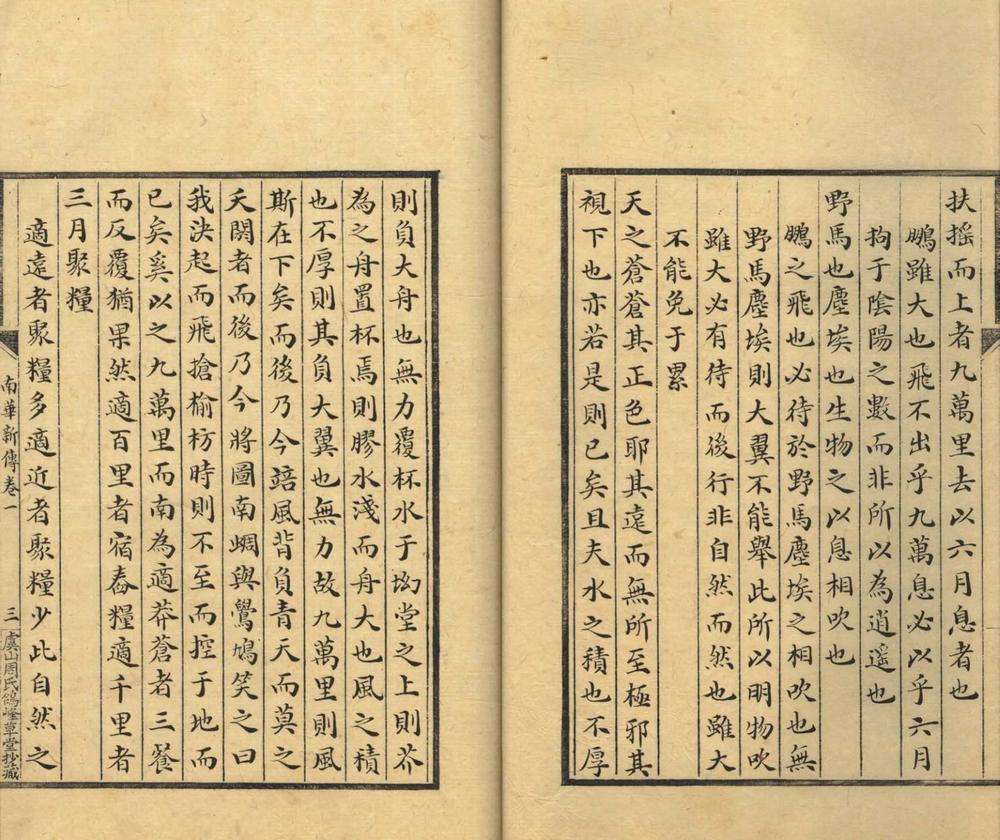 扶搖而上者九萬里去以六月息者也
鵬雖大也飛不出乎九萬息必以乎六月
拘于陰陽之數而非所以為逍遥也
野馬也塵埃也生物之以息相吹也
鵬之飛也必待於野馬塵埃之相吹也無
野馬塵埃則大翼不能舉此所以明物吹
雖大必有待而後行非自然而然也雖大
不能免于累
天之蒼蒼其正色耶其遠而無所至極邪其
視下也亦若是則已矣且夫水之積也不厚
則負大舟也無力覆杯水于坳堂之上則芥
為之舟置杯焉則膠水淺而舟大也風之積
也不厚則其負大翼也無力故九萬里則風
斯在下矣而後乃今踣風背負青天而莫之
夭閼者而後乃今將圖南蜩與鷽鳩笑之曰
我決起而飛搶榆枋時則不至而控于地而
已矣奚以之九萬里而南為適莽蒼者三餐
而反覆猶果然適百里者宿舂糧適千里者
三月聚糧
適遠者聚糧多適近者聚糧少此自然之
南華新傳卷一
三
虞山周氏鴿峰草堂抄藏